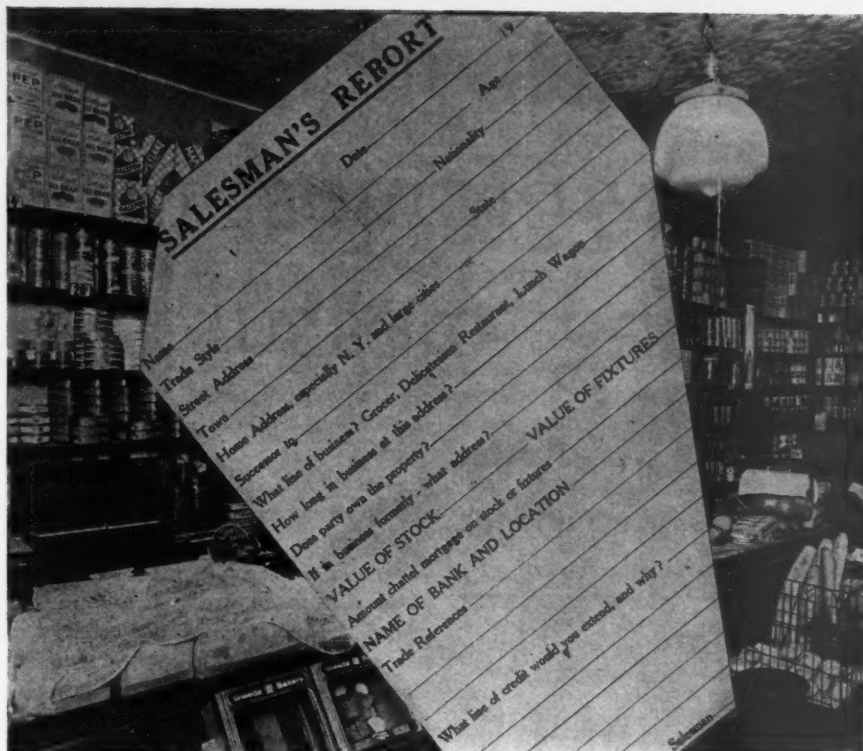 SALESMAN'S REPORT
Date 19
Name Age
Trade Style Nationality
Street Address
Town State
Home Address, especially N. Y. and large cities
Successor to
What line of business? Grocer, Delicatessen Restaurant, Lunch Wagon
How long in business at this address?
Does party own the property?
If in business formerly - what address?
VALUE OF STOCK VALUE OF FIXTURES
Amount chattel mortgage on stock or fixtures
NAME OF BANK AND LOCATION
Trade References
What line of credit would you extend, and why?
Salesman
PEP
ALL-BRAN
PEP
ALL-BRAN
PEP
ALL-BRAN